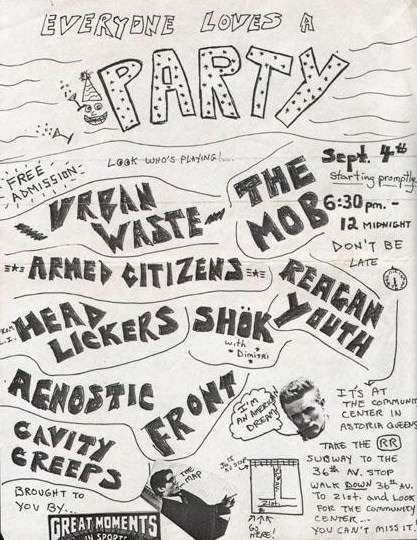 EVERYONE LOVES A
PARTY
LOOK WHO'S PLAYING!...
FREE
ADMISSION
Sept. 4th
starting promptly
6:30 pm. -
12 MIDNIGHT
DON'T BE
LATE
URBAN
WASTE
THE
MOB
ARMED CITIZENS
REAGAN
YOUTH
FROM
L.I.
HEAD
LICKERS
SHÖK
with
Dimitri
AGNOSTIC
FRONT
CAVITY
CREEPS
I'M
AN AMERICAN
DREAM
IT'S AT
THE COMMUNITY
CENTER IN
ASTORIA QUEENS
TAKE THE RR
SUBWAY TO THE
36th AV. STOP
WALK DOWN 36th AV.
TO 21st. and LOOK
FOR THE COMMUNITY
CENTER...
YOU CAN'T MISS IT!
THE
MAP
21st.
GO
HERE!
BROUGHT TO
YOU BY...
GREAT MOMENTS
IN SPORTS